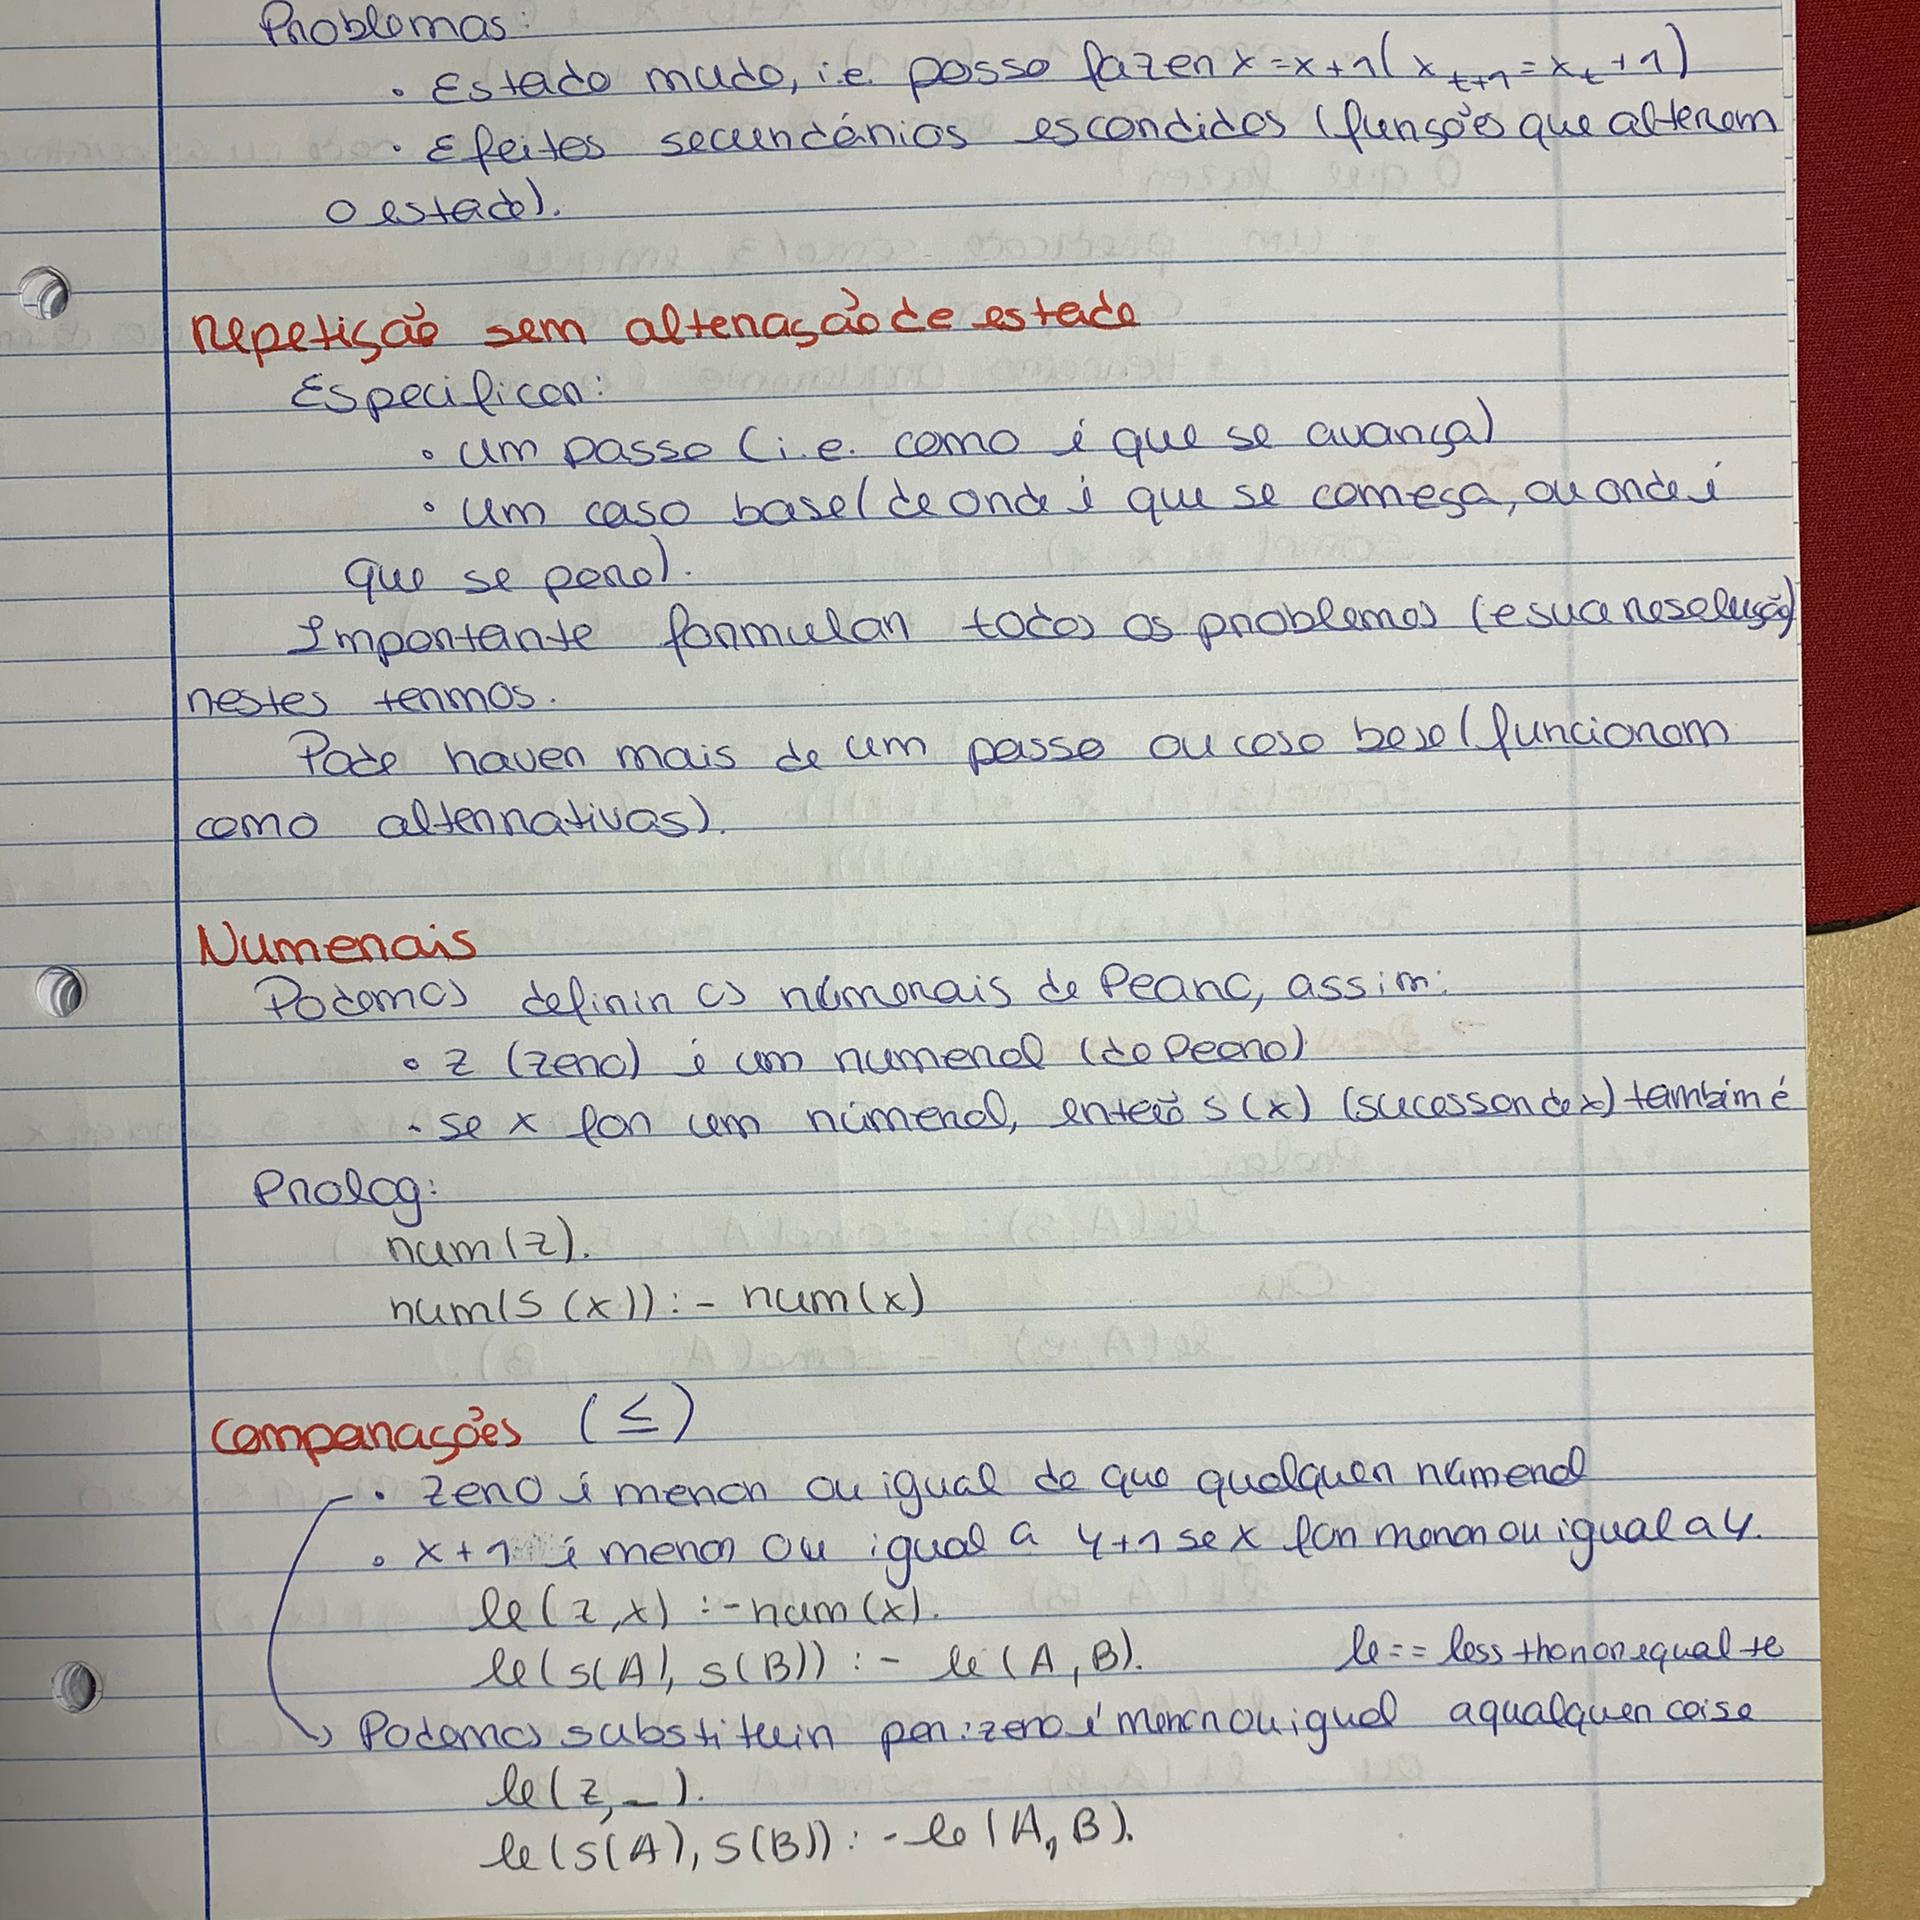 Problemas:
• Estado mudo, i.e. posso fazer x = x+1 ( x_{t+1} = x_t + 1 )
• Efeitos secundários escondidos (funções que alteram
o estado).
Repetição sem alteração de estado
Especificar:
• um passo (i.e. como é que se avança)
• um caso base (de onde é que se começa, ou onde é
que se para).
Importante formular todos os problemas (e sua resolução)
nestes termos.
Pode haver mais de um passo ou caso base (funcionam
como alternativas).
Numerais
Podemos definir os númerais de Peano, assim:
• z (zero) é um numeral (do Peano)
• se x for um númeral, então s(x) (sucessor de x) também é
Prolog:
num(z).
num(s(x)) :- num(x)
Comparações (≤)
• zero é menor ou igual do que qualquer numeral
• x+1 é menor ou igual a y+1 se x for menor ou igual a y.
le(z,x) :- num(x).
le(s(A), s(B)) :- le(A,B).
le == less than or equal to
Podemos substituir por: zero é menor ou igual a qualquer coisa
le(z,_).
le(s(A), s(B)) :- le(A,B).